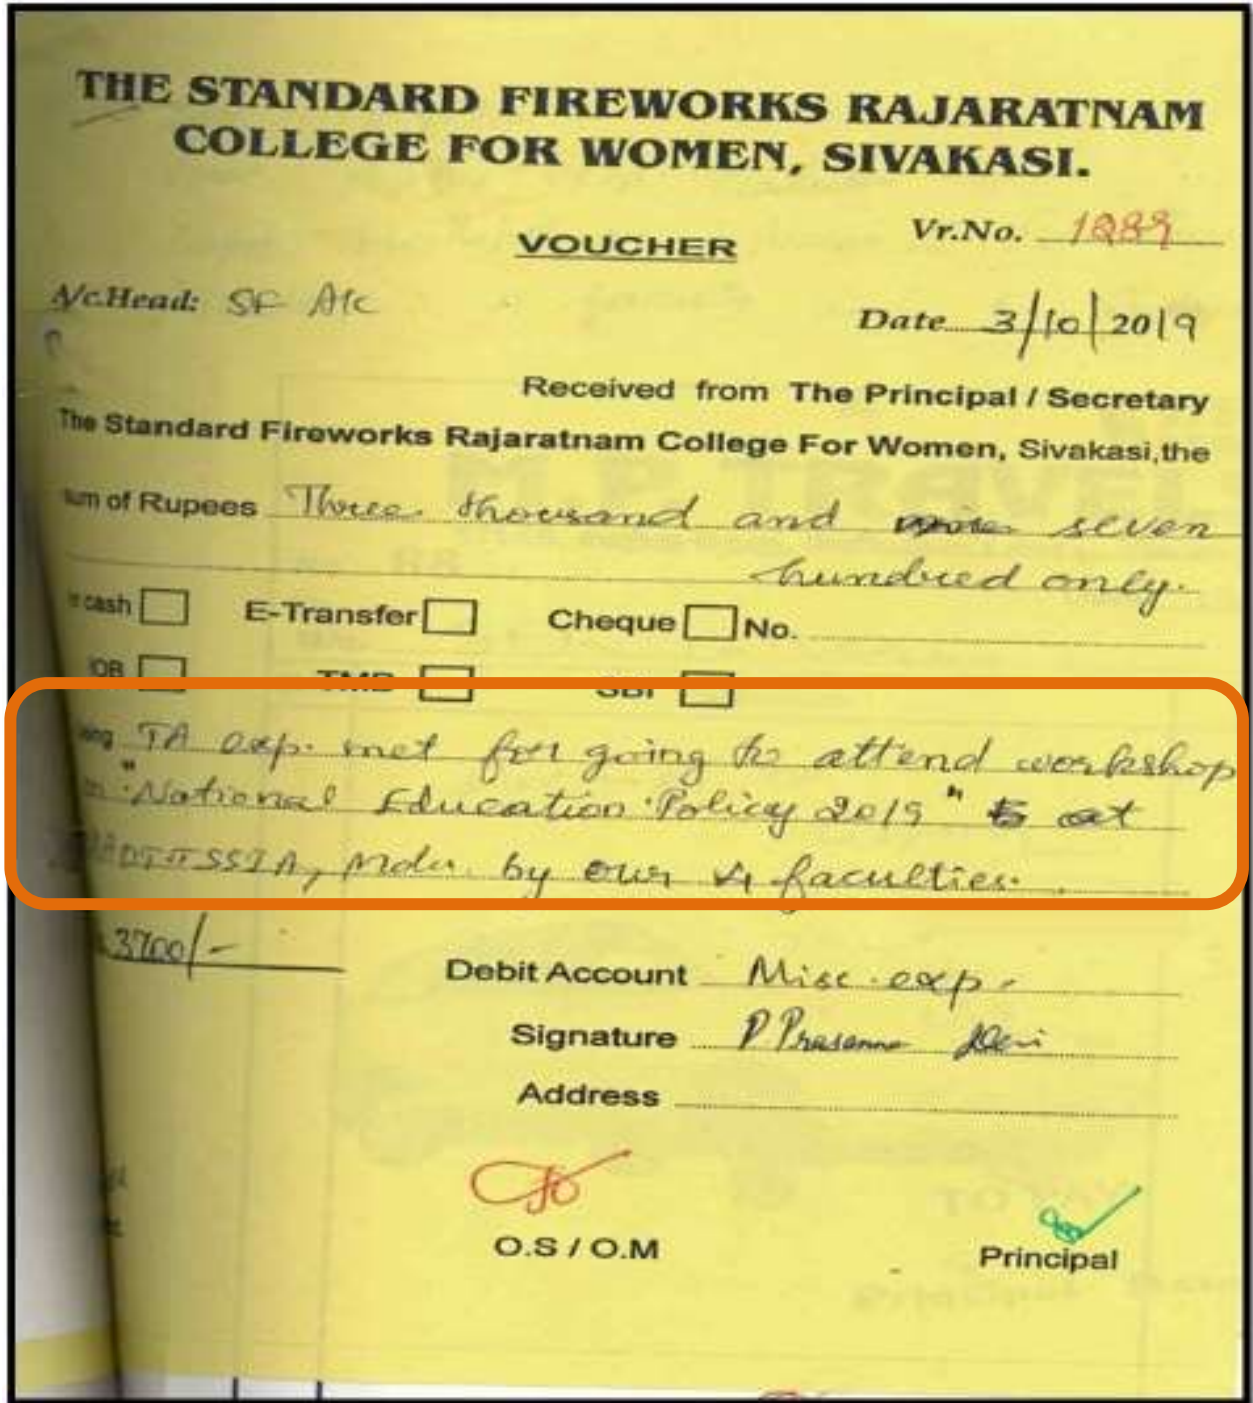 THE STANDARD FIREWORKS RAJARATNAM
COLLEGE FOR WOMEN, SIVAKASI.
Vr.No. 1289
VOUCHER
A/c.Head: SF A/c
Date 3/10/2019
Received from The Principal / Secretary
The Standard Fireworks Rajaratnam College For Women, Sivakasi,the
sum of Rupees Three thousand and seven
hundred only.
cash E-Transfer Cheque No.
IOB TMB SBI
TA exp. met for going to attend workshop
"National Education Policy 2019" at
MADITSSIA, Mdu. by our 4 faculties.
3700/-
Debit Account Misc. exp.
Signature P Prasanna Devi
Address
O.S / O.M
Principal